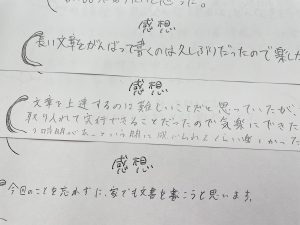 感想
長い文章をがんばって書くのは久しぶりだったので楽した
感想
文章を上達するのは難しいことだと思っていたが、
取り入れて実行できることだったので気楽にできた
感想
今回のことを忘れずに、家でも文書を書こうと思います。